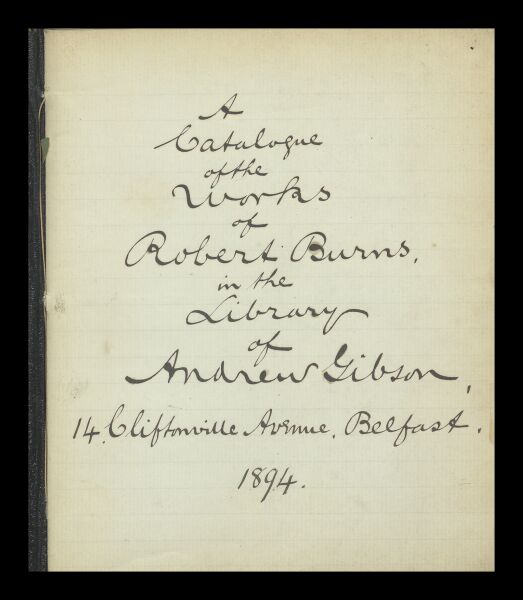 A
Catalogue
of the
Works
of
Robert Burns,
in the
Library
of
Andrew Gibson,
14, Cliftonville Avenue, Belfast.
1894.